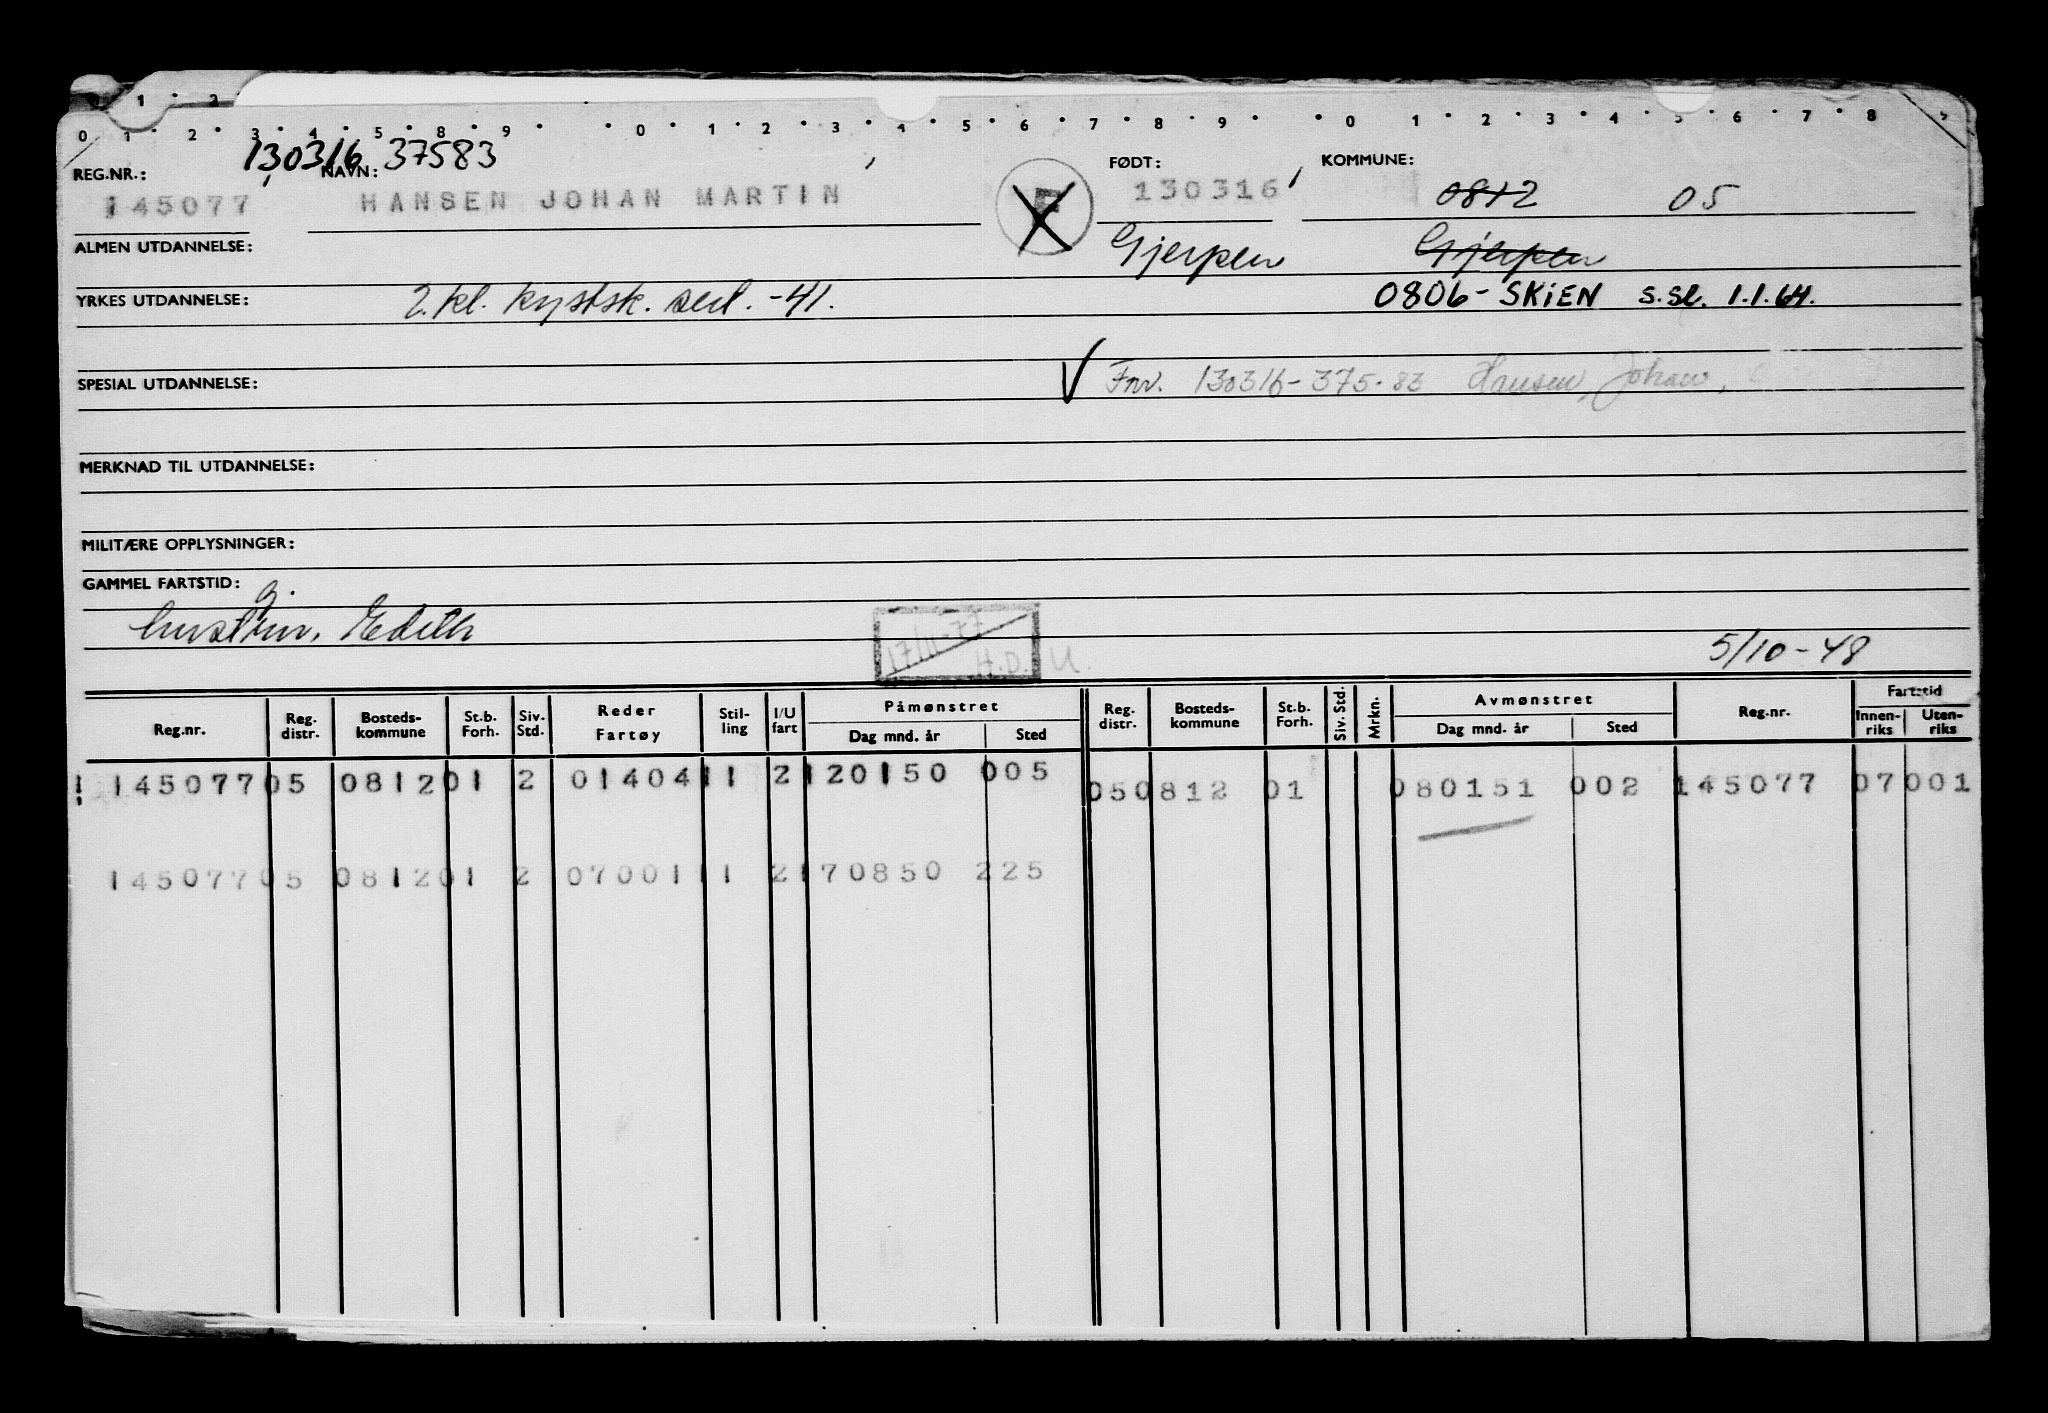 0 1 2
0 1 2 3 4 5 6 7 8 9 0 1 2 3 4 5 6 7 8 9 0 1 2 3 4 5 6 7 8 9
130316 37583
REG.NR.: NAVN: FØDT: KOMMUNE:
145077 HANSEN JOHAN MARTIN 130316 0812 05
ALMEN UTDANNELSE: Gjerpen Gjerpen
YRKES UTDANNELSE: 2.kl. kystsk. sert. -41. 0806 - SKiEN S.Sl. 1.1.64.
SPESIAL UTDANNELSE: Fnr. 130316-375.83 Hansen, Johan,
MERKNAD TIL UTDANNELSE:
MILITÆRE OPPLYSNINGER:
GAMMEL FARTSTID: g.
hustru, Edith 17/11-77 H.D.U. 5/10-48
Reg.nr. Reg. distr. Bosteds-kommune St.b. Forh. Siv. Std. Reder Fartøy Stil-ling I/U fart Påmønstret Dag mnd. år Sted Reg. distr. Bosteds-kommune St.b. Forh. Siv. Std. Mrkn. Avmønstret Dag mnd. år Sted Reg.nr. Fartstid Innen-riks Uten-riks
145077 05 0812 01 2 01404 11 2 120150 005 05 0812 01 080151 002 145077 07 001
145077 05 0812 01 2 07001 11 2 170850 225